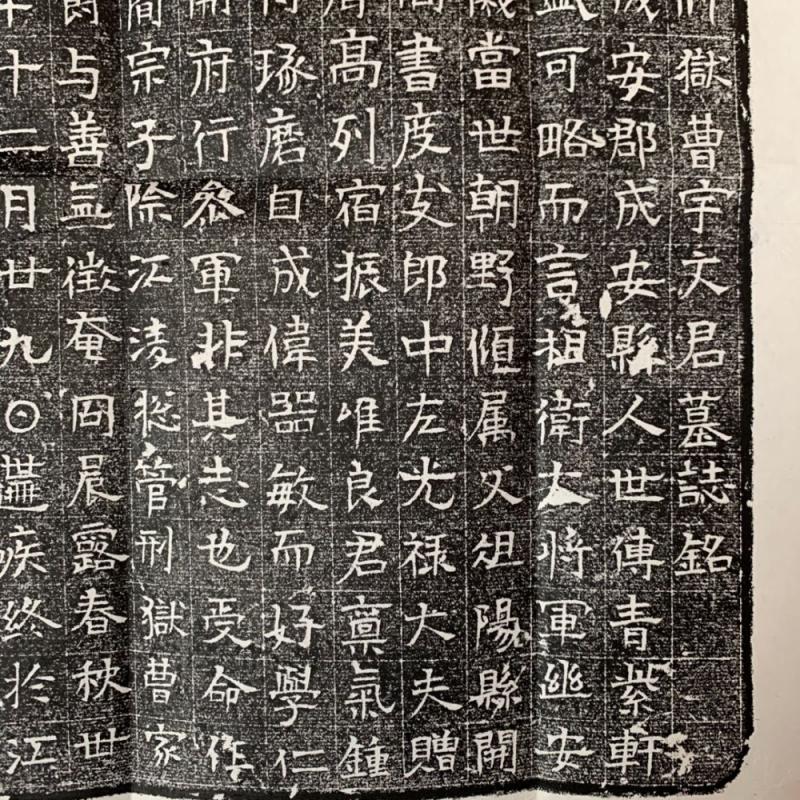 獄曹宇文君墓誌銘
安郡成安縣人世傳青紫軒
可略而言祖衛大將軍幽安
當世朝野傾属父俎陽縣開
書度支郎中左光禄大夫贈
高列宿振美唯良君稟氣鍾
琢磨自成偉器敏而好學仁
開府行參軍非其志也受命作
簡宗子除江陵揔管刑獄曹家
爵与善無徵奄同晨露春秋卅
十二月廿九日遘疾終於江